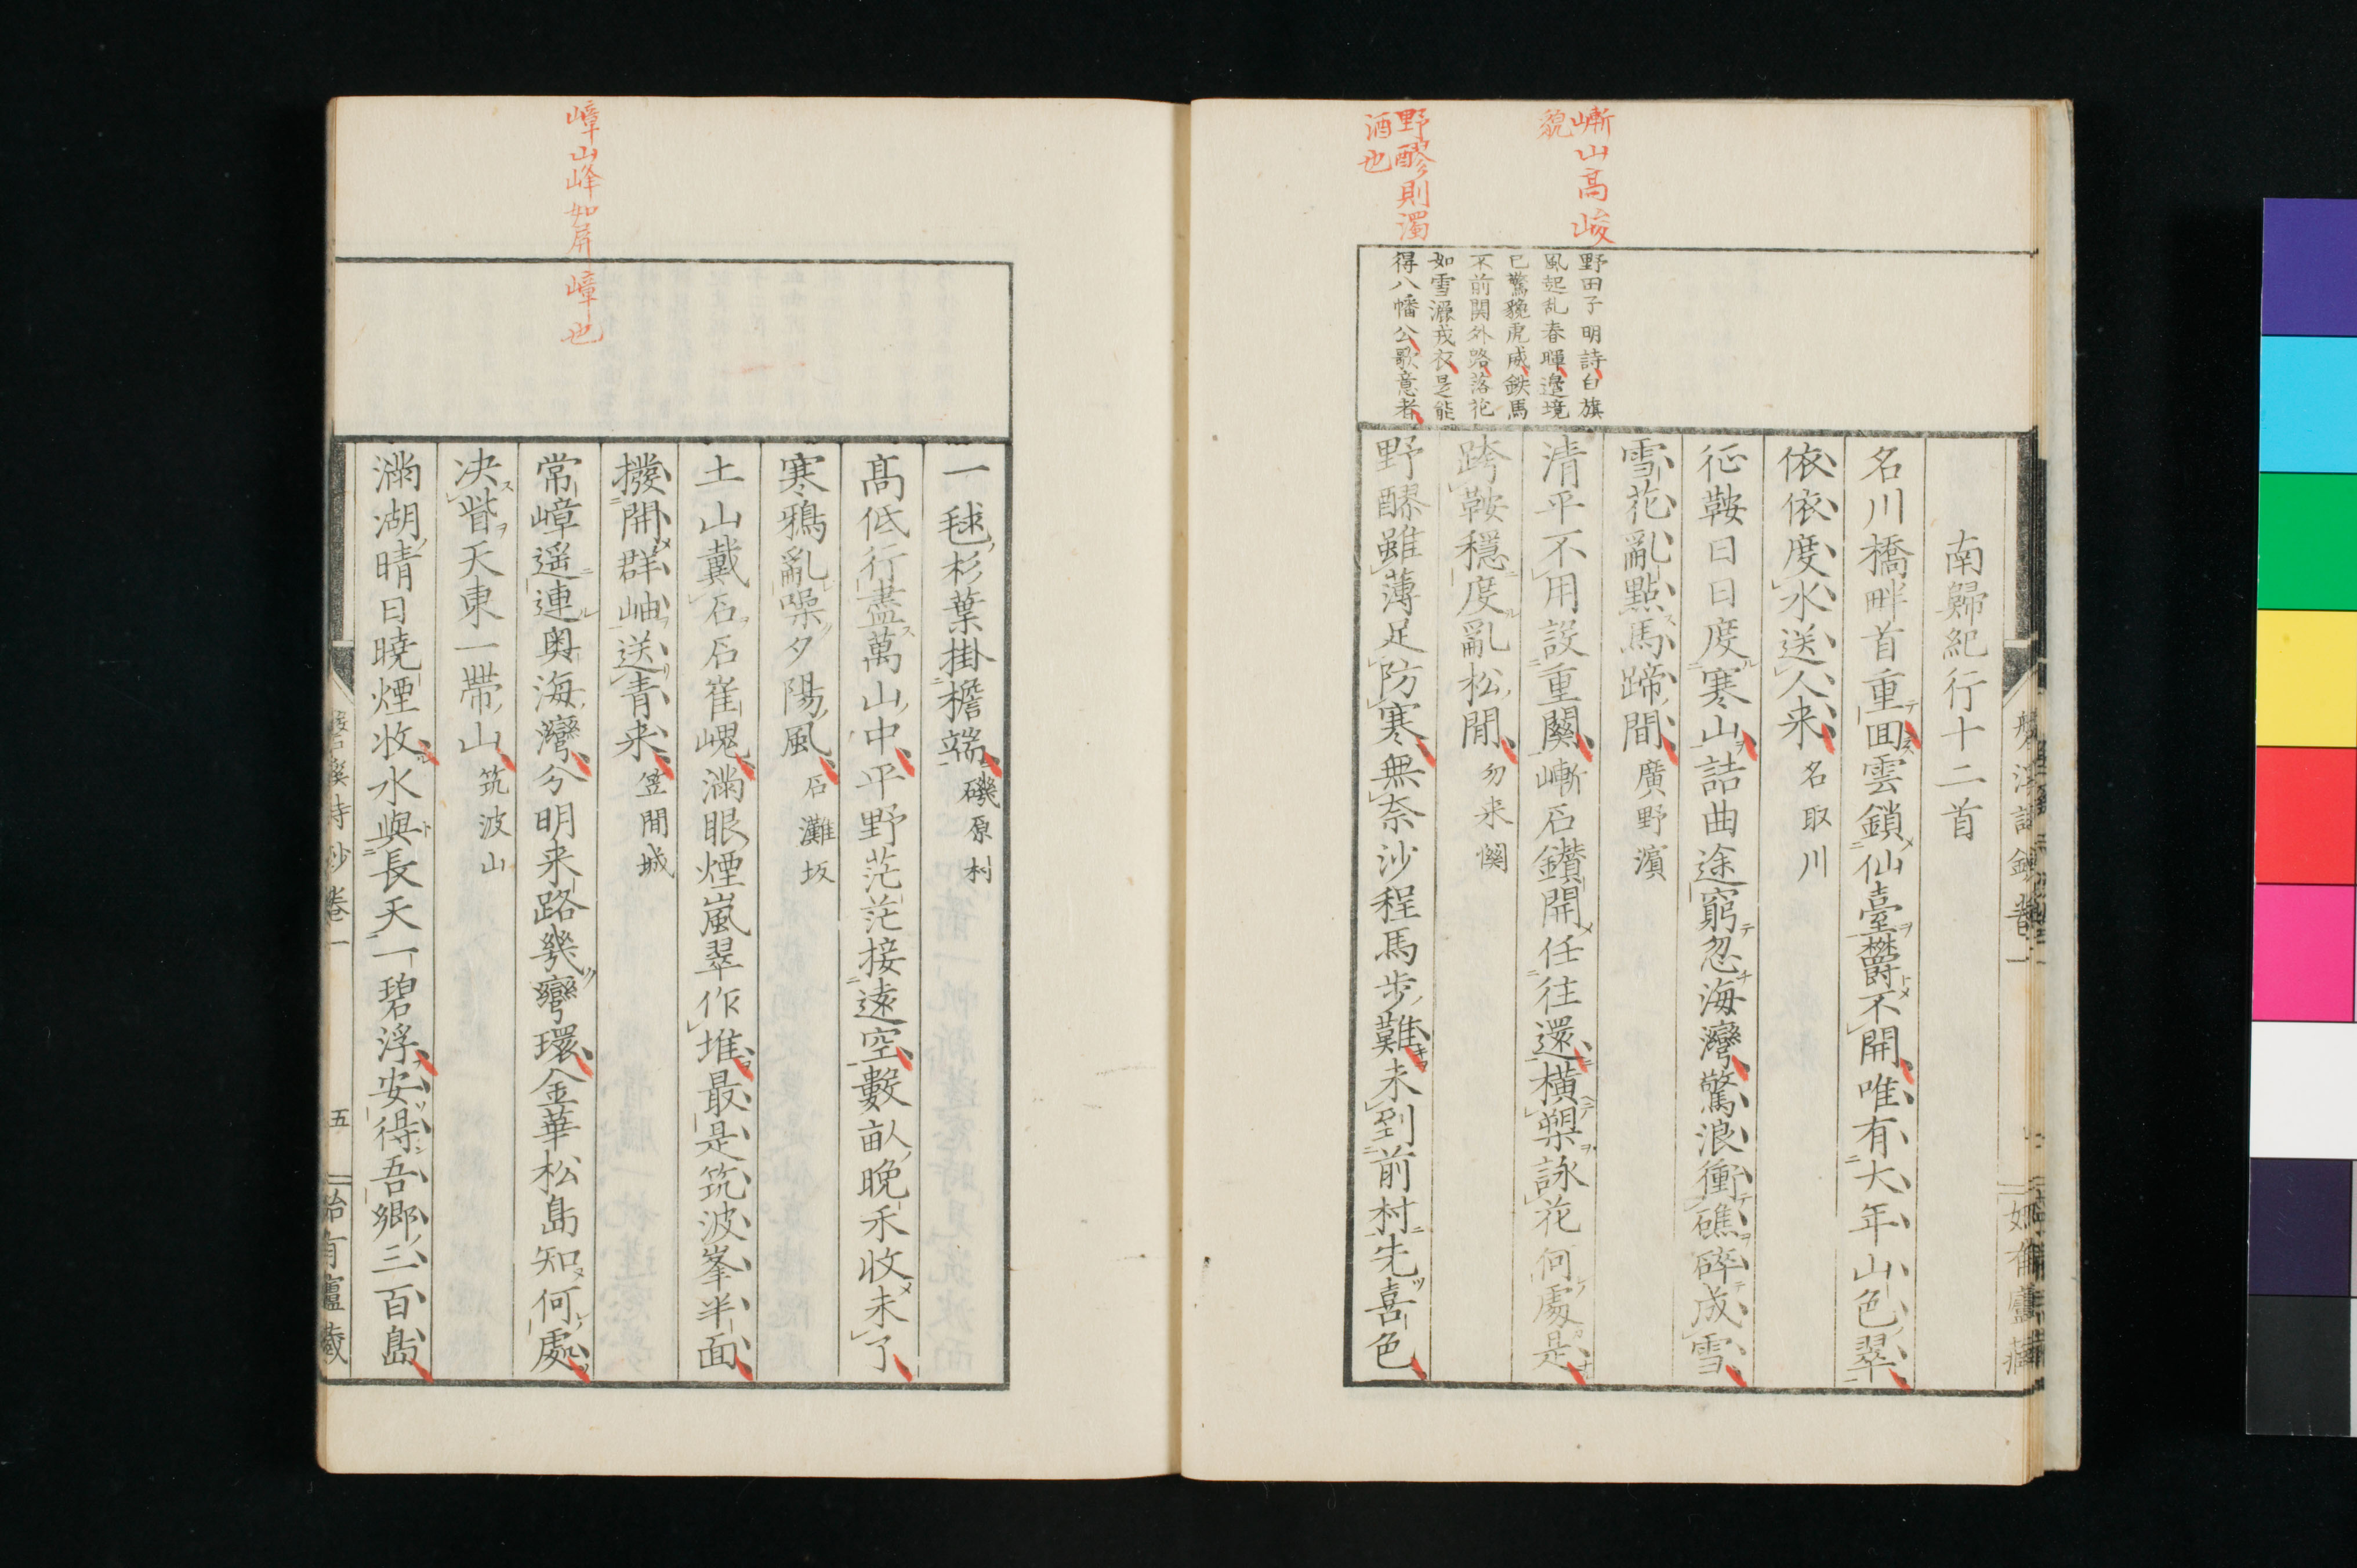 嶃山高峻
貌
野醪則濁
酒也
野田子明詩白旗
風起乱春暉邉境
已驚貔虎威鉄馬
不前関外路落花
如雪灑戎衣是能
得八幡公歌意者
南歸紀行十二首
名川橋畔首重囬雲鎖仙臺鬱不開唯有大年山色翠
依依度水送人来 名取川
征鞍日日度寒山詰曲途窮忽海灣驚浪衝礁碎成雪
雪花亂點馬蹄間 廣野濵
清平不用設重關嶃石鑚開任往還横槊詠花何處是
跨鞍穩度亂松間 勿来関
野醪雖薄足防寒無奈沙程馬步難未到前村先喜色
嶂山峰如屏嶂也
一毬杉葉掛檐端 磯原村
髙低行盡萬山中平野茫茫接遠空數畝晩禾收未了
寒鴉亂噪夕陽風 石灘坂
土山戴石石崔嵬滿眼煙嵐翠作堆最是筑波峯半面
撥開群岫送青来 笠間城
常嶂遥連奥海灣分明来路幾彎環金華松島知何處
决眥天東一帶山 筑波山
滿湖晴日曉煙收水與長天一碧浮安得吾郷三百島
五